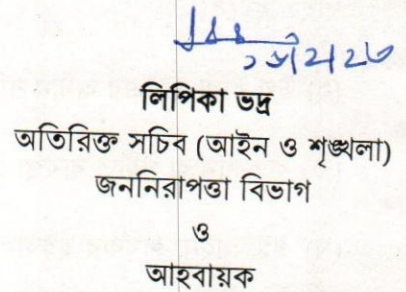 লিপিকা ভদ্র
অতিরিক্ত সচিব (আইন ও শৃঙ্খলা)
জননিরাপত্তা বিভাগ
ও
আহবায়ক